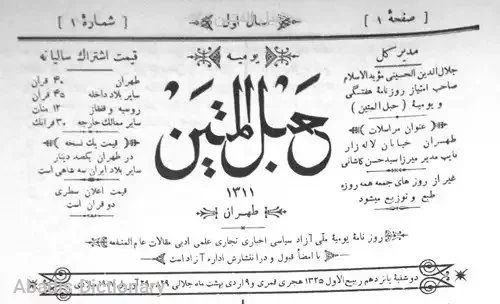 [ صفحهٔ ۱ ]
[ سال اول ]
[ شمارهٔ ۱ ]
مدیر کل
جلال الدین الحسینی مؤید الاسلام
صاحب امتیاز روزنامهٔ هفتگی
و یومیهٔ ( حبل المتین )
( عنوان مراسلات )
طهران خیابان لاله زار
نایب مدیر میرزا سید حسن کاشانی
غیر از روز های جمعه همه روزه
طبع و توزیع میشود
یومیه
حبل المتین
۱۳۱۱
طهران
قیمت اشتراک سالیانه
طهران ۴۰ قران
سایر بلاد داخله ۴۵ قران
روسیه و قفقاز ۱۲ منات
سایر ممالک خارجه ۳۰ فرانک
( قیمت یک نسخه )
در طهران یکصد دینار
سایر بلاد ایران سه شاهی است
قیمت اعلان سطری
دو قران است
روز نامهٔ یومیهٔ ملی آزاد سیاسی اخباری تجاری علمی ادبی مقالات عام المنفعه
با امضا قبول و در انتشارش اداره آزاد است
دوشنبه پانزدهم ربیع الاول ۱۳۲۵ هجری قمری و ۹ اردی بهشت ماه جلالی
Abadis Dictionary